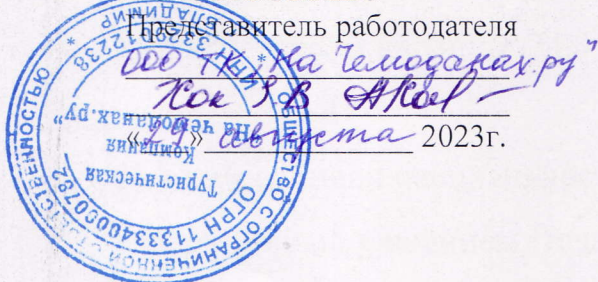 Представитель работодателя
ООО ТК „На Чемоданах.ру"
«29» августа 2023г.
ОБЩЕСТВО С ОГРАНИЧЕННОЙ ОТВЕТСТВЕННОСТЬЮ
ВЛАДИМИР
Туристическая
Компания
"На чемоданах.ру"